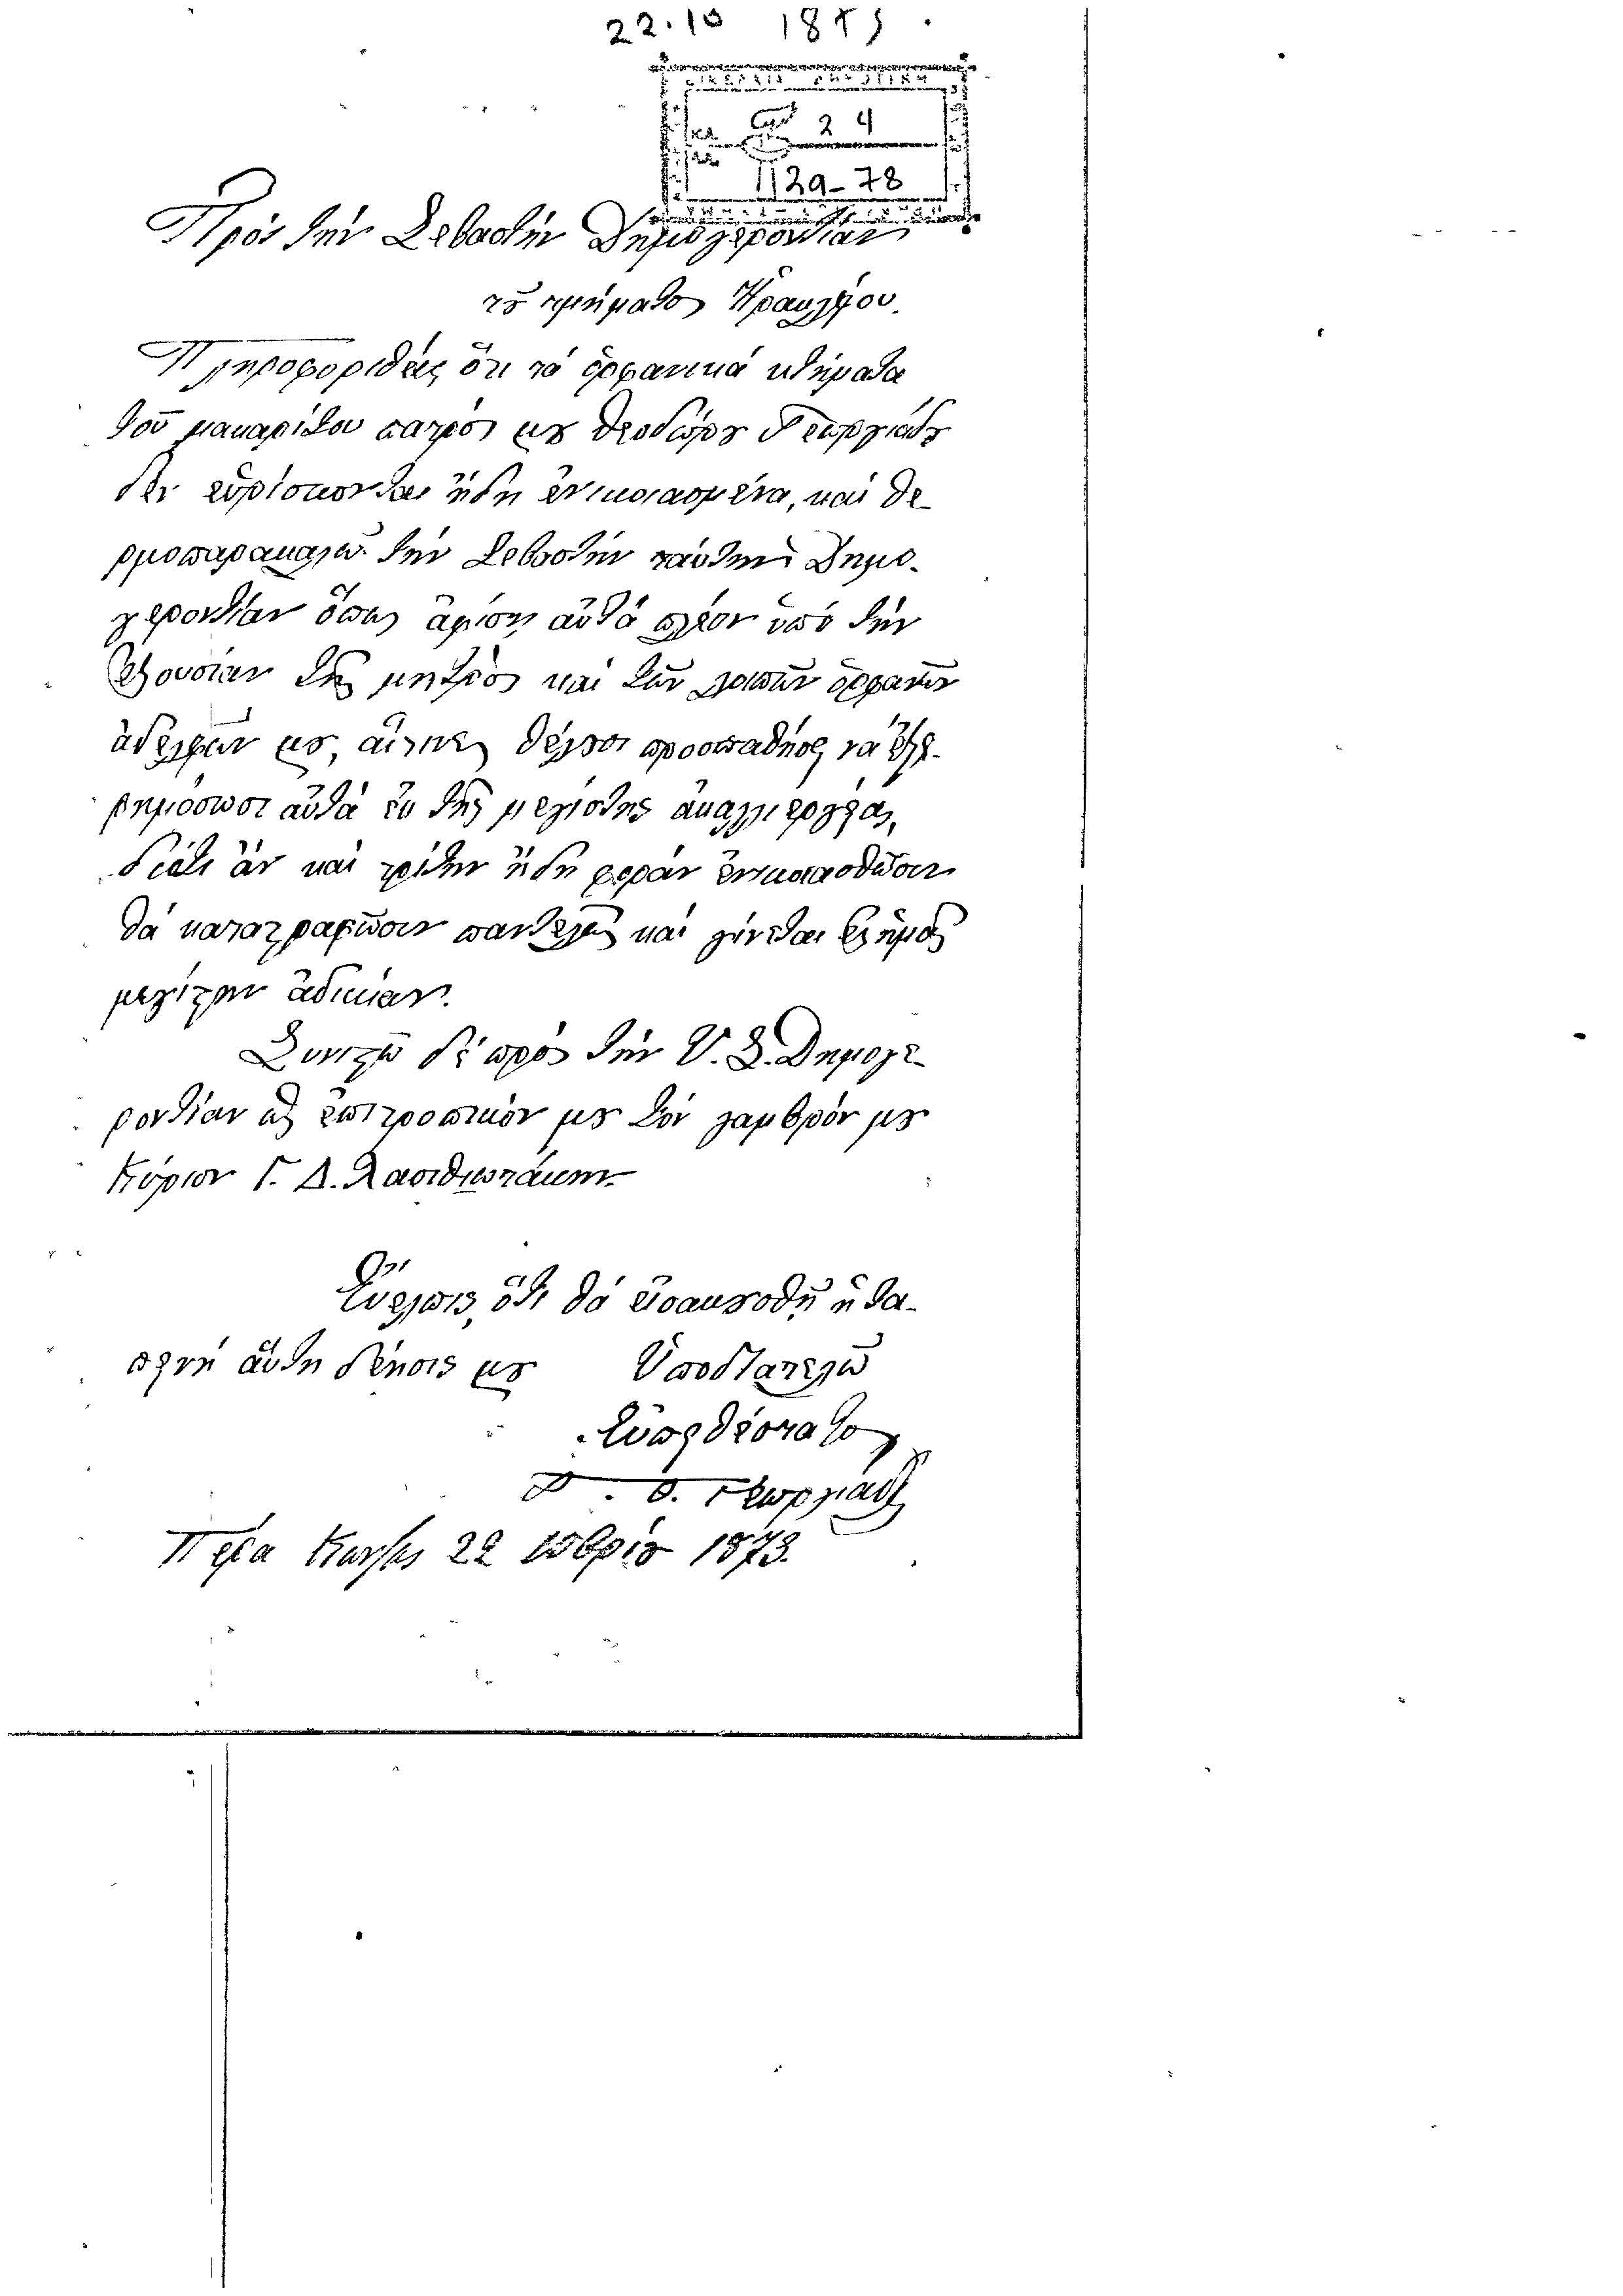 22.10 1873
24
1129-78
Πρός τήν Σεβαστήν Δημογεροντίαν
τοῦ τμήματος Ἡρακλείου.
Πληροφορηθείς ὅτι τά ὀρφανικά κτήματα
τοῦ μακαρίτου πατρός μου Θεοδώρου Γεωργιάδου
δέν εὑρίσκονται ἤδη ἐνοικιασμένα, καί θε-
ρμοπαρακαλῶ τήν Σεβαστήν ταύτην Δημο-
γεροντίαν ὅπως ἀφίσῃ αὐτά πλέον ὑπό τήν
ἐξουσίαν τῆς μητρός καί τῶν λοιπῶν ὀρφανῶν
ἀδελφῶν μου, αἵτινες θέλουσι προσπαθήσει νά
αὐτά ἐκ τῆς μεγίστης ἀκαλλιεργείας,
διότι ἄν καί τρίτην ἤδη φοράν ἐνοικιασθῶσιν
θά καταστραφῶσιν παντελῶς καί γίνεται εἰς ἡμᾶς
μεγίστην ἀδικίαν.
Συνιστῶ δέ πρός τήν Υ. Σ. Δημογε-
ροντίαν ὡς ἐπίτροπικόν μου τόν γαμβρόν μου
Κύριον Γ. Δ. Λασιθιωτάκην.
Εὔελπις, ὅτι θά εἰσακουσθῇ ἡ τα-
πεινή αὕτη δέησίς μου Ὑποσημειοῦμαι
Εὐπειθέστατος
Θ. Γεωργιάδης
Πέρα Κων/λις 22 10βρίου 1873.